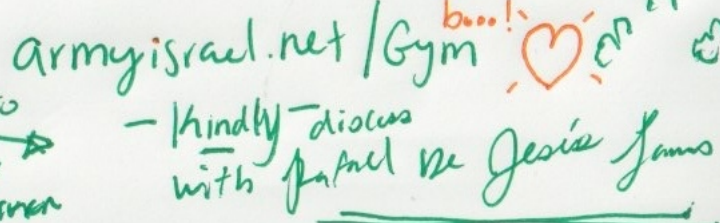 armyisrael.net/Gym booo!
- Kindly - discuss
with Rafael De Jesús